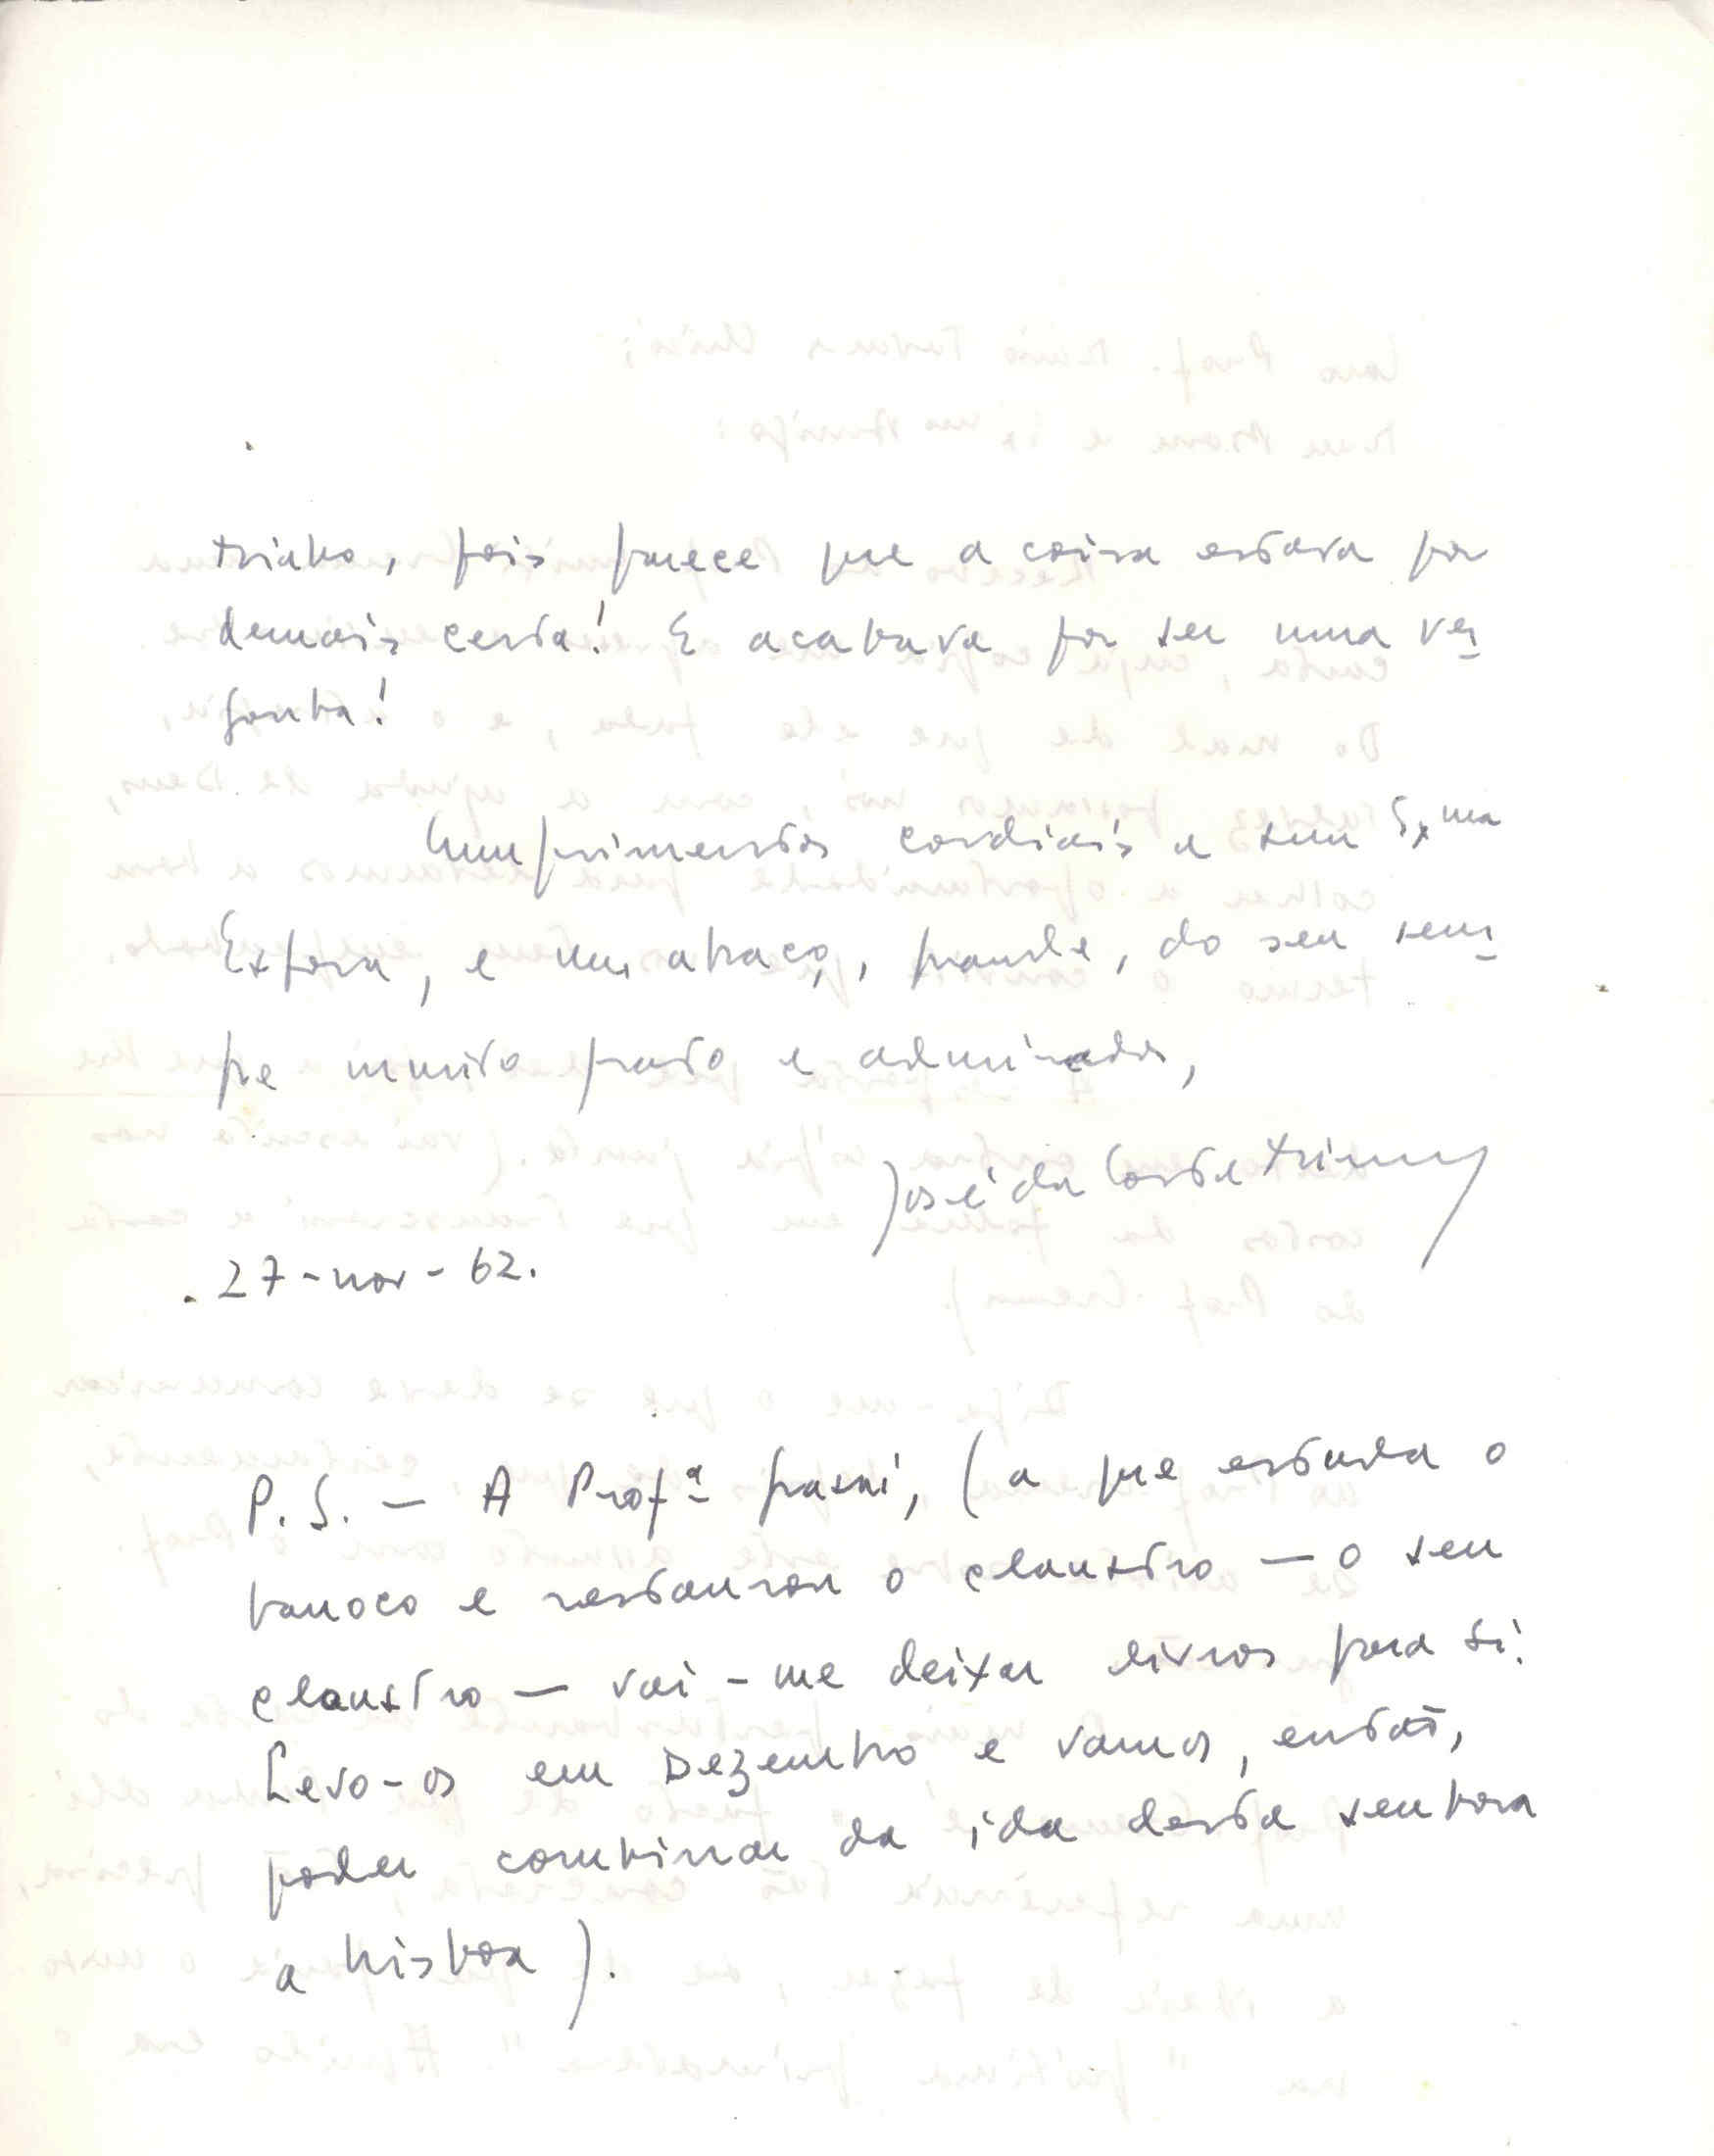 trinho, pois parece que a coisa estava por
demais certa! E acabava por ser uma ver
gonha!
Cumprimentos cordiais a sua Exma
Esposa, e um abraço, grande, do seu sem
pre muito grato e admirador,
José da Costa
27-nov-62.
P.S. — A Profª grassi, (a que estuda o
barroco e restaurou o claustro — o seu
claustro — vai-me deixar livros para si.
Levo-os em Dezembro e vamos, então,
poder combinar da ida desta senhora
a Lisboa).